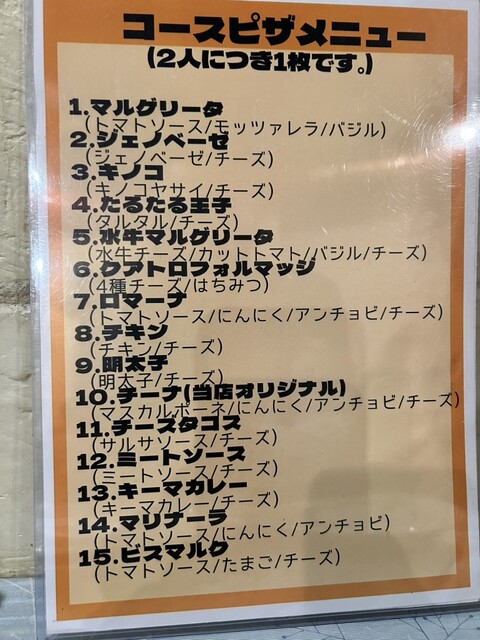 コースピザメニュー
(2人につき1枚です。)
1.マルグリータ
(トマトソース/モッツァレラ/バジル)
2.ジェノベーゼ
(ジェノベーゼ/チーズ)
3.キノコ
(キノコヤサイ/チーズ)
4.たるたる王子
(タルタル/チーズ)
5.水牛マルグリータ
(水牛チーズ/カットトマト/バジル/チーズ)
6.クアトロフォルマッジ
(4種チーズ/はちみつ)
7.ロマーナ
(トマトソース/にんにく/アンチョビ/チーズ)
8.チキン
(チキン/チーズ)
9.明太子
(明太子/チーズ)
10.チーナ(当店オリジナル)
(マスカルポーネ/にんにく/アンチョビ/チーズ)
11.チーズタコス
(サルサソース/チーズ)
12.ミートソース
(ミートソース/チーズ)
13.キーマカレー
(キーマカレー/チーズ)
14.マリナーラ
(トマトソース/にんにく/アンチョビ)
15.ビスマルク
(トマトソース/たまご/チーズ)